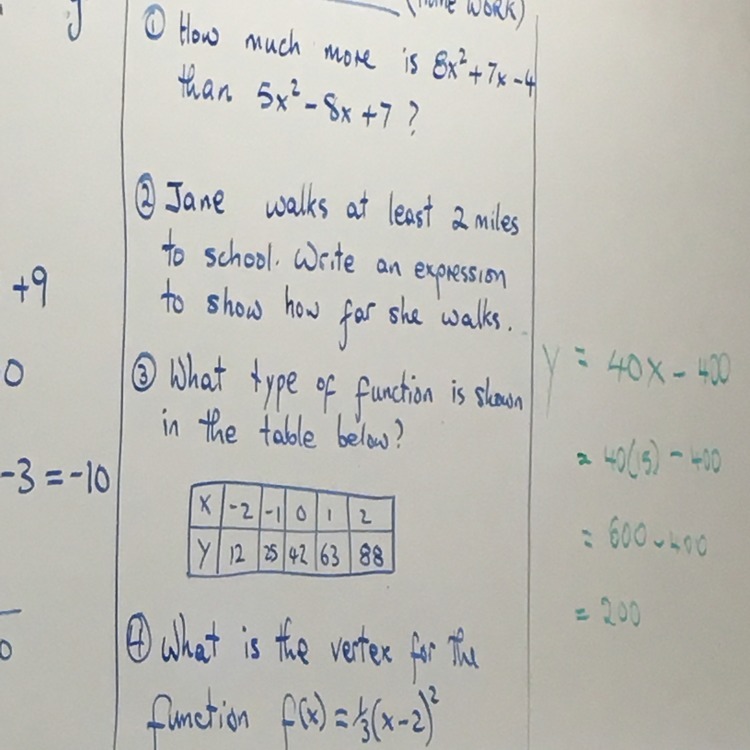 (HOME WORK)
① How much more is 8x²+7x-4
than 5x²-8x+7?
② Jane walks at least 2 miles
to school. Write an expression
to show how far she walks.
③ What type of function is shown
in the table below?
X -2 -1 0 1 2
Y 12 25 42 63 88
④ What is the vertex for the
function f(x)=⅓(x-2)²
+9
0
-3=-10
0
y = 40x - 400
= 40(15) - 400
= 600-400
= 200